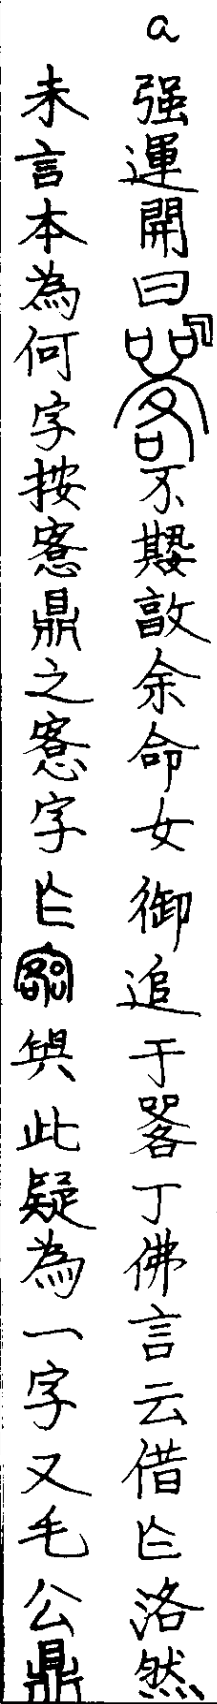 a 强運開曰不𡢁敦余命女御追于丁佛言云借乍洛然
未言本為何字按愙鼎之愙字乍與此疑為一字又毛公鼎